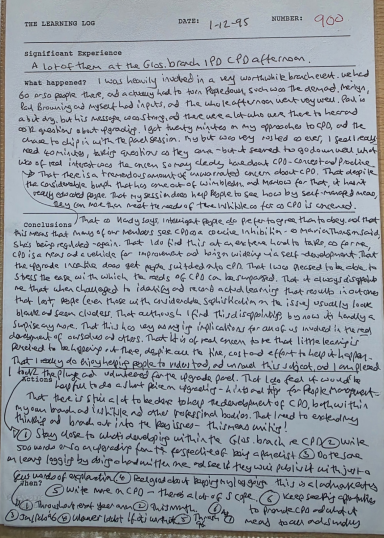 THE LEARNING LOG DATE: 1-12-95 NUMBER: 900
Significant Experience
A lot of them at the Glas. branch IPD CPD afternoon.
What happened? I was heavily involved in a very worthwhile branch event. we had
60 or so people there, and actually had to turn People down, such was the demand.
Paul Browning and myself had inputs, and the whole afternoon went very well. Paul is
a bit dry, but his message was strong, and there were a lot who were there to hear and
ask questions about upgrading. I got twenty minutes on my approaches to CPD, and the
chance to chip in with the panel session. My bit was very rushed as ever, I
need 40 minutes, taking questions as they come - but it seemed to go down well. What
was of real interest was the concern so many clearly have about CPD - concept and practice
That there is a tremendous amount of unwarranted concern about CPD. That despite
the considerable bumph that has come out of Wimbledon, and
really educated people. That my session does help People to see how by self managed means,
they can more than meet the needs of the Institute so far as CPD is concerned.
Conclusions That as Handy says intelligent people do prefer to agree than to obey. and that
this means that many of our members see CPD as a coercive inhibition - as Maria Thomson said
she's being regulated - again. That I do find this at an extreme hard to take, as for me,
CPD is a means and a vehicle for improvement and horizon widening via self-development. That
the upgrade incentive does get people suited into CPD. That I was pressed to be able to
stress the ease with which the needs of CPD can be surpassed. That it always disappoints
me that when challenged to identify and record actual learning that results in outcomes
that lot, people (even those with considerable sophistication on the issue) usually look
blank and seem clueless. That although I find this disappointing by now it's hardly a
surprise any more. That this has very worrying implications for all of us involved in the real
development of ourselves and others. That it is of real concern to me that little learning is
perceived to be happening out there, despite all the time, cost and effort to help it happen.
That I really do enjoy helping people to understand, and unravel this subject, and I am pleased
I took the plunge and volunteered for the upgrade panel. That I do feel it would be
Actions helpful to do a short piece on upgrading - a hint and tip for People Management -
That there is still a lot to be done to help the development of CPD, both within
my own branch and Institute and other professional bodies. That I need to extend my
thinking and branch out into the key issues - this means writing!
① Stay close to what's developing within the Glas. branch re CPD ② Write
500 words or so on upgrading from the perspective of being a panelist ③ Do tease
on learning logging by doing a handwritten one and see if they will publish it with just a
few words of explanation ④ Feel good about keeping my logs going this is a landmark entry
When? ⑤ Write more on CPD - there's a lot of scope. ⑥ Keep seeking opportunities
① Throughout next year anew ② This month to promote CPD and what it
③ Jan/Feb 96 ④ ⑤ Through 96 means to all and sundry